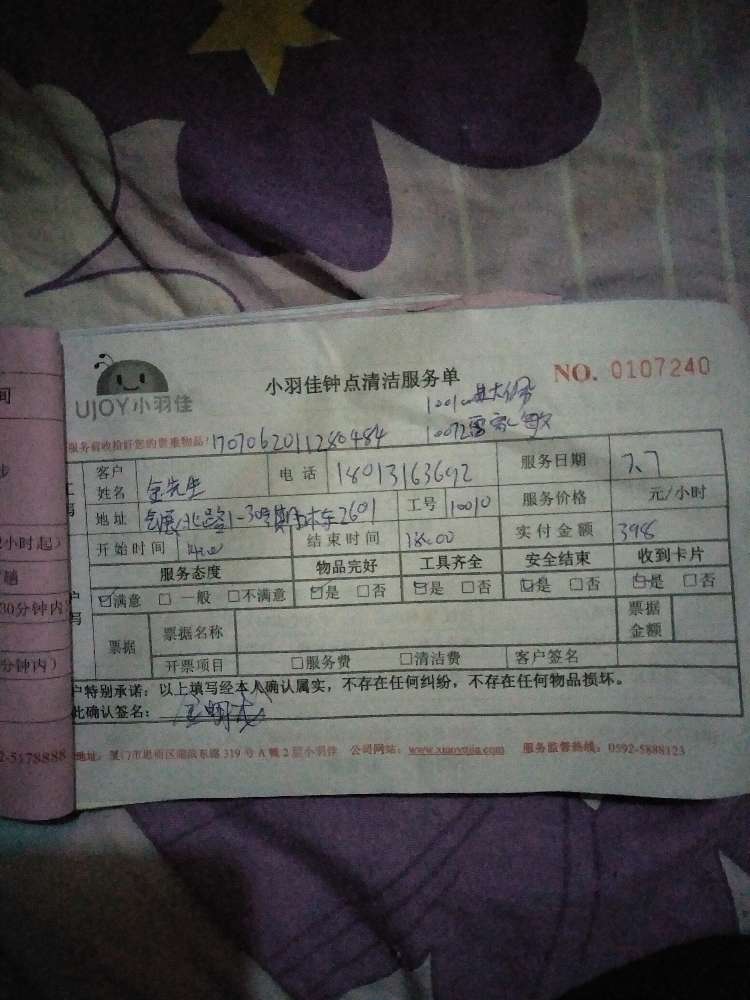 小羽佳钟点清洁服务单
NO. 0107240
UJOY小羽佳
服务前收拾好您的贵重物品!
1707062011280484
10010
10072
客户姓名 金先生 电话 18013163692 服务日期 7.7
地址 1-30 2601 工号 10010 服务价格 元/小时
开始时间 结束时间 18:00 实付金额 398
服务态度 物品完好 工具齐全 安全结束 收到卡片
☑满意 □一般 □不满意 ☑是 □否 ☑是 □否 ☑是 □否 ☑是 □否
票据 票据名称 票据金额
开票项目 □服务费 □清洁费 客户签名
户特别承诺：以上填写经本人确认属实，不存在任何纠纷，不存在任何物品损坏。
此确认签名：
地址：厦门市思明区湖滨东路 319 号 A 幢 2 层小羽佳 公司网站：www.xiaoyujia.com 服务监督热线：0592-5888123
间
步
小时起）
趟
30分钟内
分钟内）
2-5178888